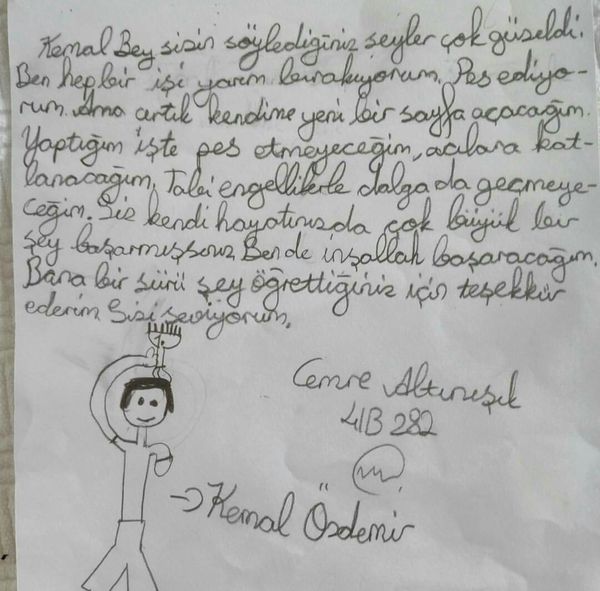 Kemal Bey sizin söylediğiniz şeyler çok güzeldi.
Ben hep bir işi yarım bırakıyorum. Pes ediyo-
rum. Ama artık kendime yeni bir sayfa açacağım.
Yaptığım işte pes etmeyeceğim, acılara kat-
lanacağım. Tabi engellilerle dalga da geçmeye-
ceğim. Siz kendi hayatınızda çok büyük bir
şey başarmışsınız. Ben de inşallah başaracağım.
Bana bir sürü şey öğrettiğiniz için teşekkür
ederim. Sizi seviyorum.
Cemre Altınışık
4/B 282
→ Kemal Özdemir